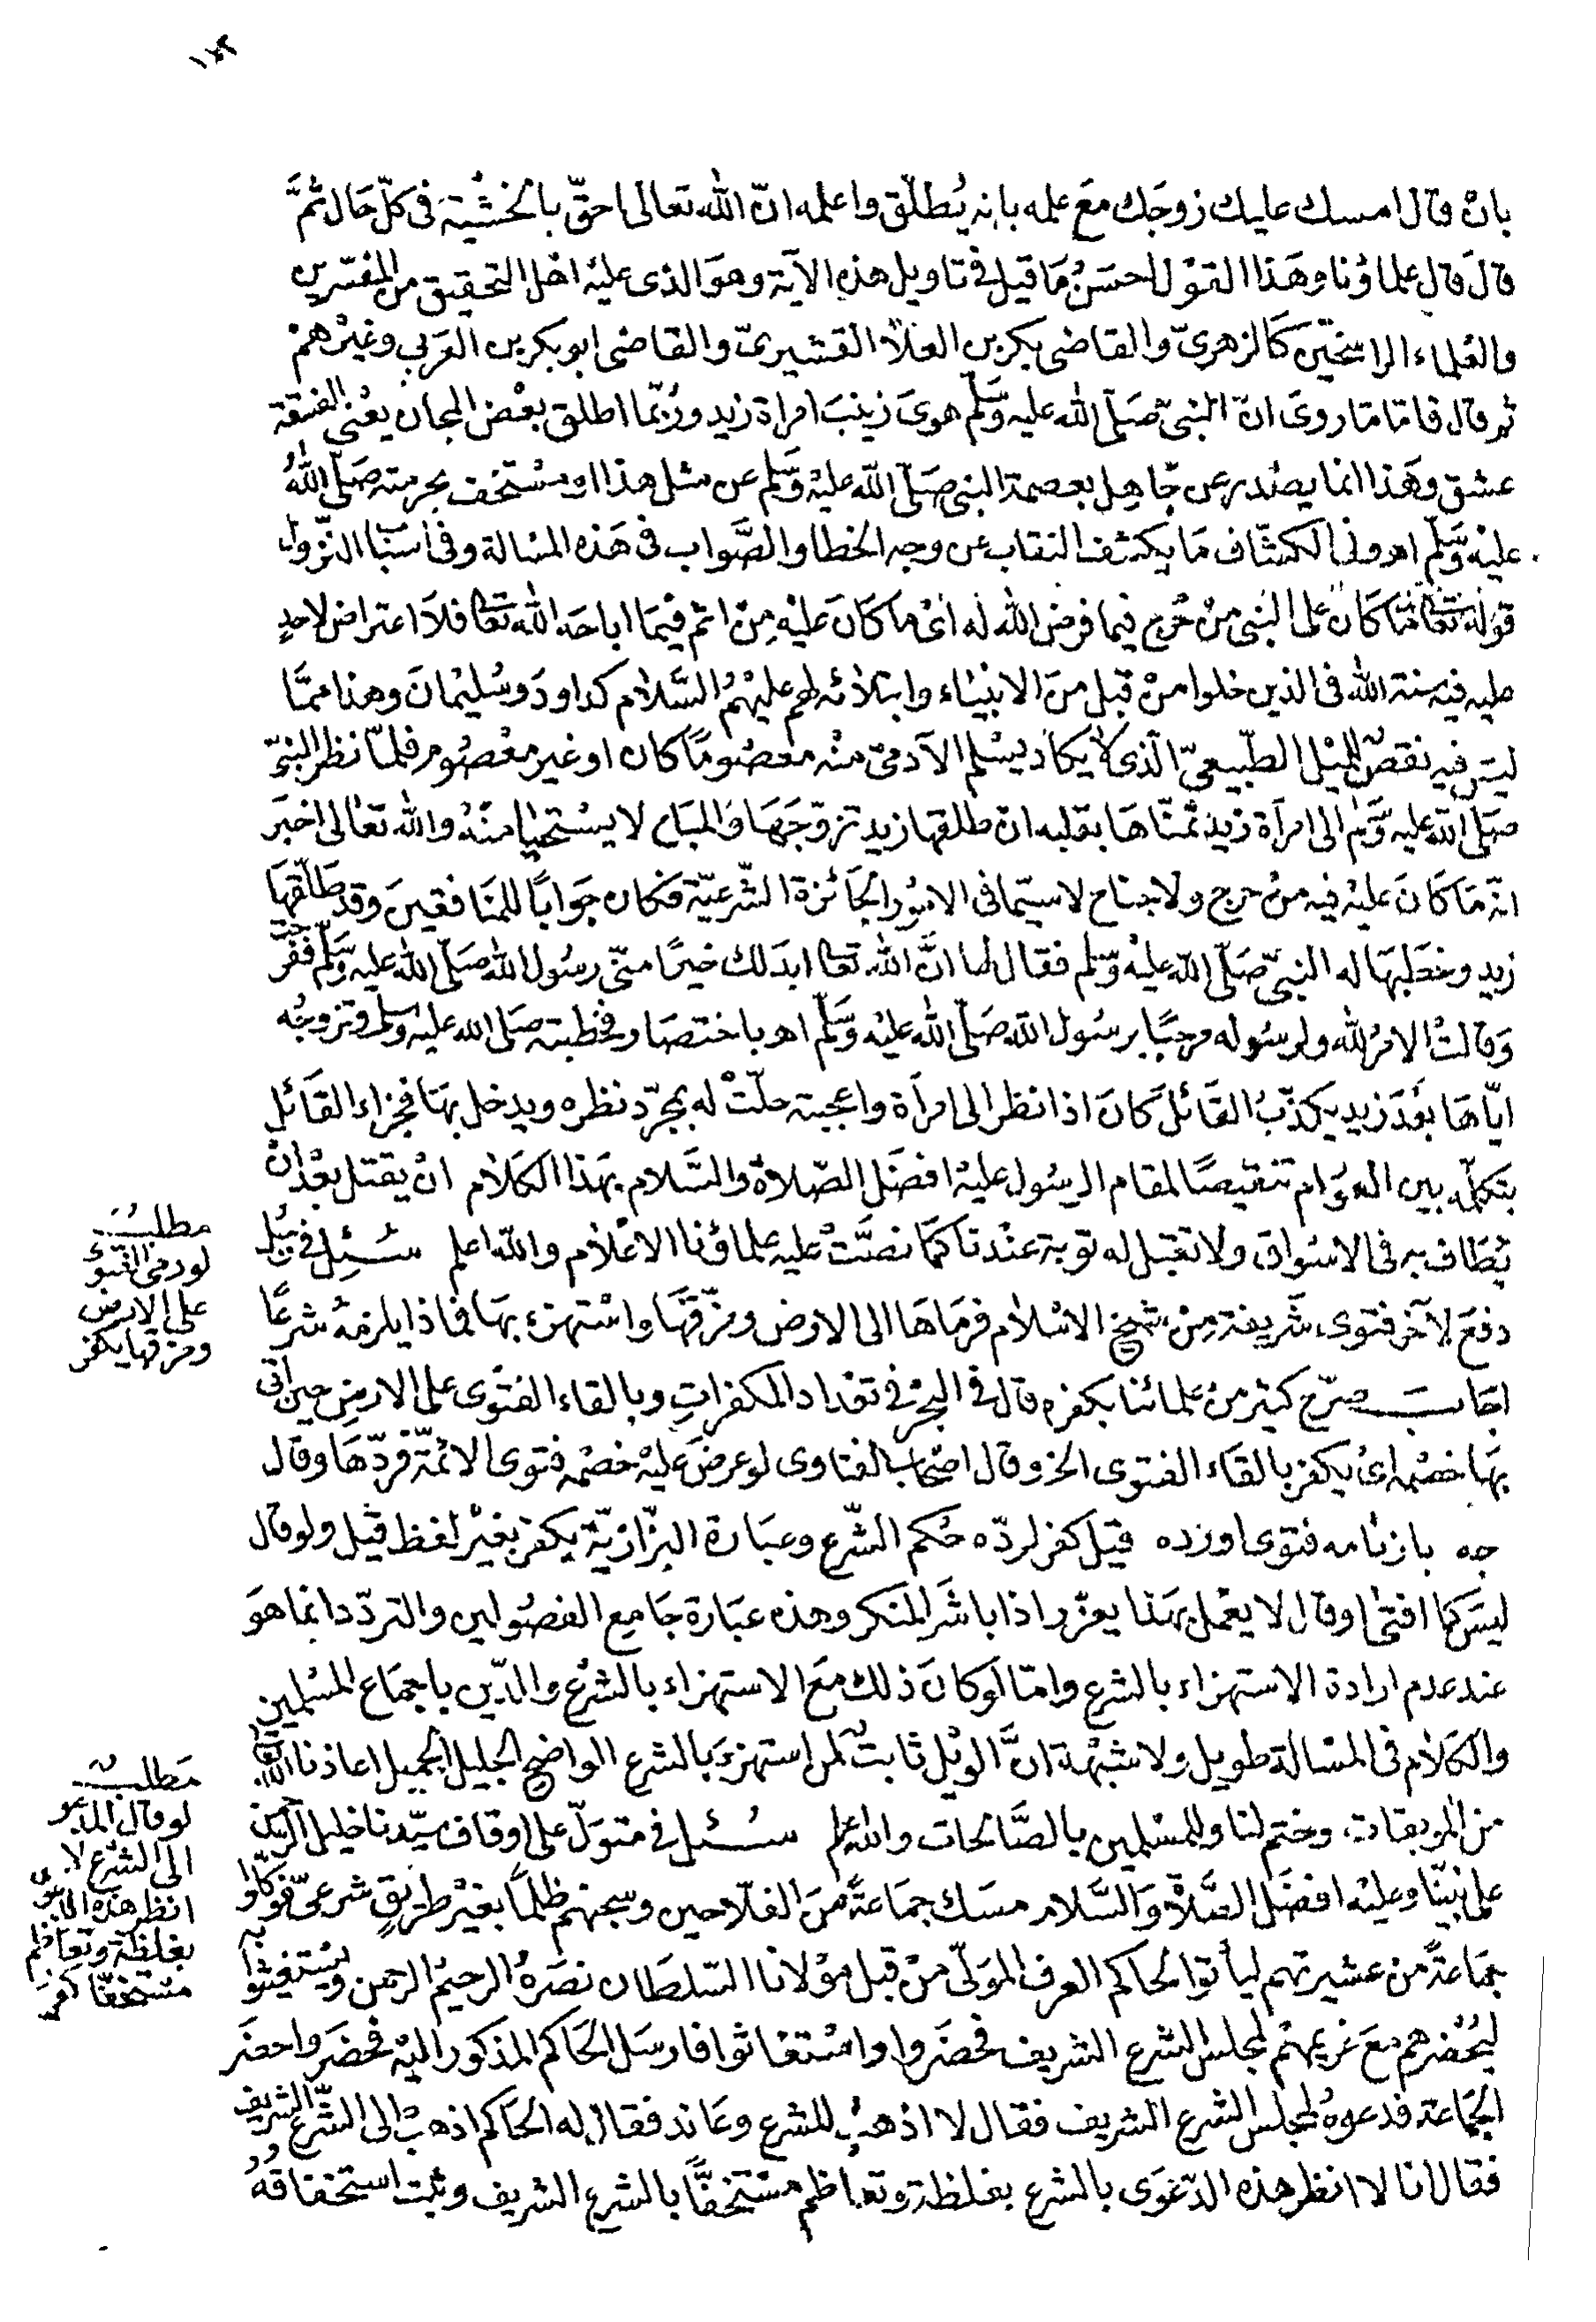 ١٧٢
بان قال امسك عليك زوجك مع علمه بانه يُطلّق واعلمه انّ الله تعالى احقّ بالخشية فى كلّ حَال ثمَّ
قالَ قال علماؤنا وهَذا القوْل احسَنُ مَا قيل فى تاويل هذه الآية وهوَ الذى عليْه اهْل التحقيق من المفسّرين
والعُلماء الراسخيْن كَالزهرىّ والقاضى بكر بن العَلآ القشيرىّ والقاضى ابو بكر بن العَربى وغيْرهمْ
ثم قال فامّا مَا روىَ انّ النبىّ صَلّى الله عليه وَسَلّم هوىَ زينبَ امراة زيد وربّما اطلق بعْض المجان يعْنى الفسقة
عشق وهَذا انما يصْدر عن جَاهِل بعصمة النبى صَلّى الله عليْه وَسَلّم عن مثل هذا او مسْتخف بحرمته صَلّى اللهُ
عليْه وَسَلّم اهـ وفى الكشّاف مَا يكشف النقاب عن وجه الخطا والصَّواب فى هَذه المسْالة وفى اسْبَاب النّزول
قوْله تعالى مَا كَانَ على النبى منْ حَرج فيما فرض الله له اىْ ما كَانَ عليْهِ مِنْ اثم فيْمَا اباحَه الله تعَالى فلاَ اعتراض لاحدٍ
عليه فيه سنة الله فى الذين خلوا منْ قبل منَ الانبيَاء وابتلائه لهم عليْهمُ السَّلام كداودَ وسُليْمانَ وهذا ممَّا
ليسَ فيه نقصٌ للميْل الطّبيعىّ الّذى لا يكاد يسْلم الآدمىّ منْه معصُومًا كان او غير معْصُوم فلمّا نظر النبىّ
صَلّى الله عليْه وَسَلّم الى امرَاة زيد تمنّاهَا بقلبه ان طلقها زيد تزوّجَهَا وَالمبَاح لا يسْتحيَا منْهُ والله تعَالى اخبَر
انّه مَا كَانَ عليْه فيه منْ حرج ولا جناح لا سيّما فى الامُور الجَائزة الشّرعيّة فكان جوَابًا للمنَافقينَ وقد طَلّقهَا
زيد وخطبهَا له النبىّ صَلّى الله عليْه وَسَلّم فقال لها انَّ الله تعالى ابدَلك خيرًا منّى رسُول الله صَلّى الله عليْه وَسَلّم ففرحَتْ
وَقالتْ الامْرُ لله ولرسُوله مرحبًا برسُول الله صَلّى الله عليْه وَسَلّم اهـ باختصَار فخطبته صَلى الله عليْه وسَلم وتزويجُه
ايّاهَا بعْدَ زيد يكذّبُ القَائل كانَ اذا نظر الى امرأة واعجبته حلّتْ له بمجرّد نظره ويدخل بهَا فجزاء القَائل
بتكلّمه بين العوَام تنقيصًا لمقام الرسُول عليْه افضَل الصّلاة والسَّلام بهَذا الكَلام انْ يقتل بعْد انْ
يُطَاف به فى الاسْواق ولا تقبَل له توبة عنْدنا كمَا نصَّتْ عليه علماؤنا الاعْلام والله اعلم سُئِل فى رجُل
دفعَ لآخر فتوى شَريفة مِنْ شيخ الاسْلام فرمَاهَا الى الارض ومزّقهَا واسْتهزء بهَا فماذا يلزمُهُ شرعًا
اجَابَ صرّح كثير منْ علمائنا بكفره قال فى البحْر فى تعْداد المكفراتِ وبالقاء الفتْوى على الارضِ حين اتى
بهَا خصْمه اىْ يكفر بالقَاء الفتوى الخ وقال اصْحَاب الفتاوى لو عرضَ عَليْه خصْمه فتوى الائمّة فردّهَا وقال
جه بازنامه فتوى اوزده قيْل كفر لردّه حُكم الشّرع وعبَارة البزّازيّة يكفر بغيْر لفظ قيْل ولو قال
ليسَ كما افتى او قال لا يعْمل بهَذا يعزّر اذا باشَر المنكر وهذه عبَارة جَامِع الفصُولين والتردّد انما هوَ
عند عدم ارادة الاستهزاء بالشرع وامّا لوْ كانَ ذلك معَ الاستهزاء بالشرْع والدّين باجمَاع المسْلمين
والكَلام فى المسْالة طويل ولا شبْهة انَّ الويْل ثابتٌ لمن استهزءَ بالشرع الواضح الجليل الجميل اعاذنا الله تعالى
من الموبقات وختم لنا وللمسْلمين بالصَّالحات والله اعلم سُئل فى متوَلّ على اوقاف سيّدنا خليل الرحمن
على نبيّنا وعليْه افضَل الصَّلاة وَالسَّلام مسَك جمَاعَةً منَ الفلّاحين وسجنهم ظلمًا بغيْر طريقٍ شرعىّ فوكلوا
جمَاعةً من عشيرتهم ليأتوا لحاكم العرف الموَلّى منْ قبل موْلانا السّلطان نصَرهُ الرحيمُ الرحمن ويستغيثوا به
ليُحْضرهم معَ غريمهمْ لمجلس الشرع الشريف فحضَروا واسْتغاثوا فارسَل الحَاكم المذكور اليْه فحضَر واحضَر
الجمَاعة فدعوهُ لمجلس الشرع الشريف فقال لا اذهبُ للشرع وعَاند فقال له الحَاكم اذهبْ الى الشّرع الشريف
فقال انا لا انظر هذه الدّعْوَى بالشرع بغلظة وتعاظم مسْتخفًّا بالشرع الشريف وثبت استخفافهُ
مطلبُ
لو رمى الفتوى
على الارض
ومزقها يكفر
مَطلب
لو قال المدعو
الى الشرْع لا
انظر هذه الدعوى
بغلظة وتعاظم
مسْتخفًّا كفر